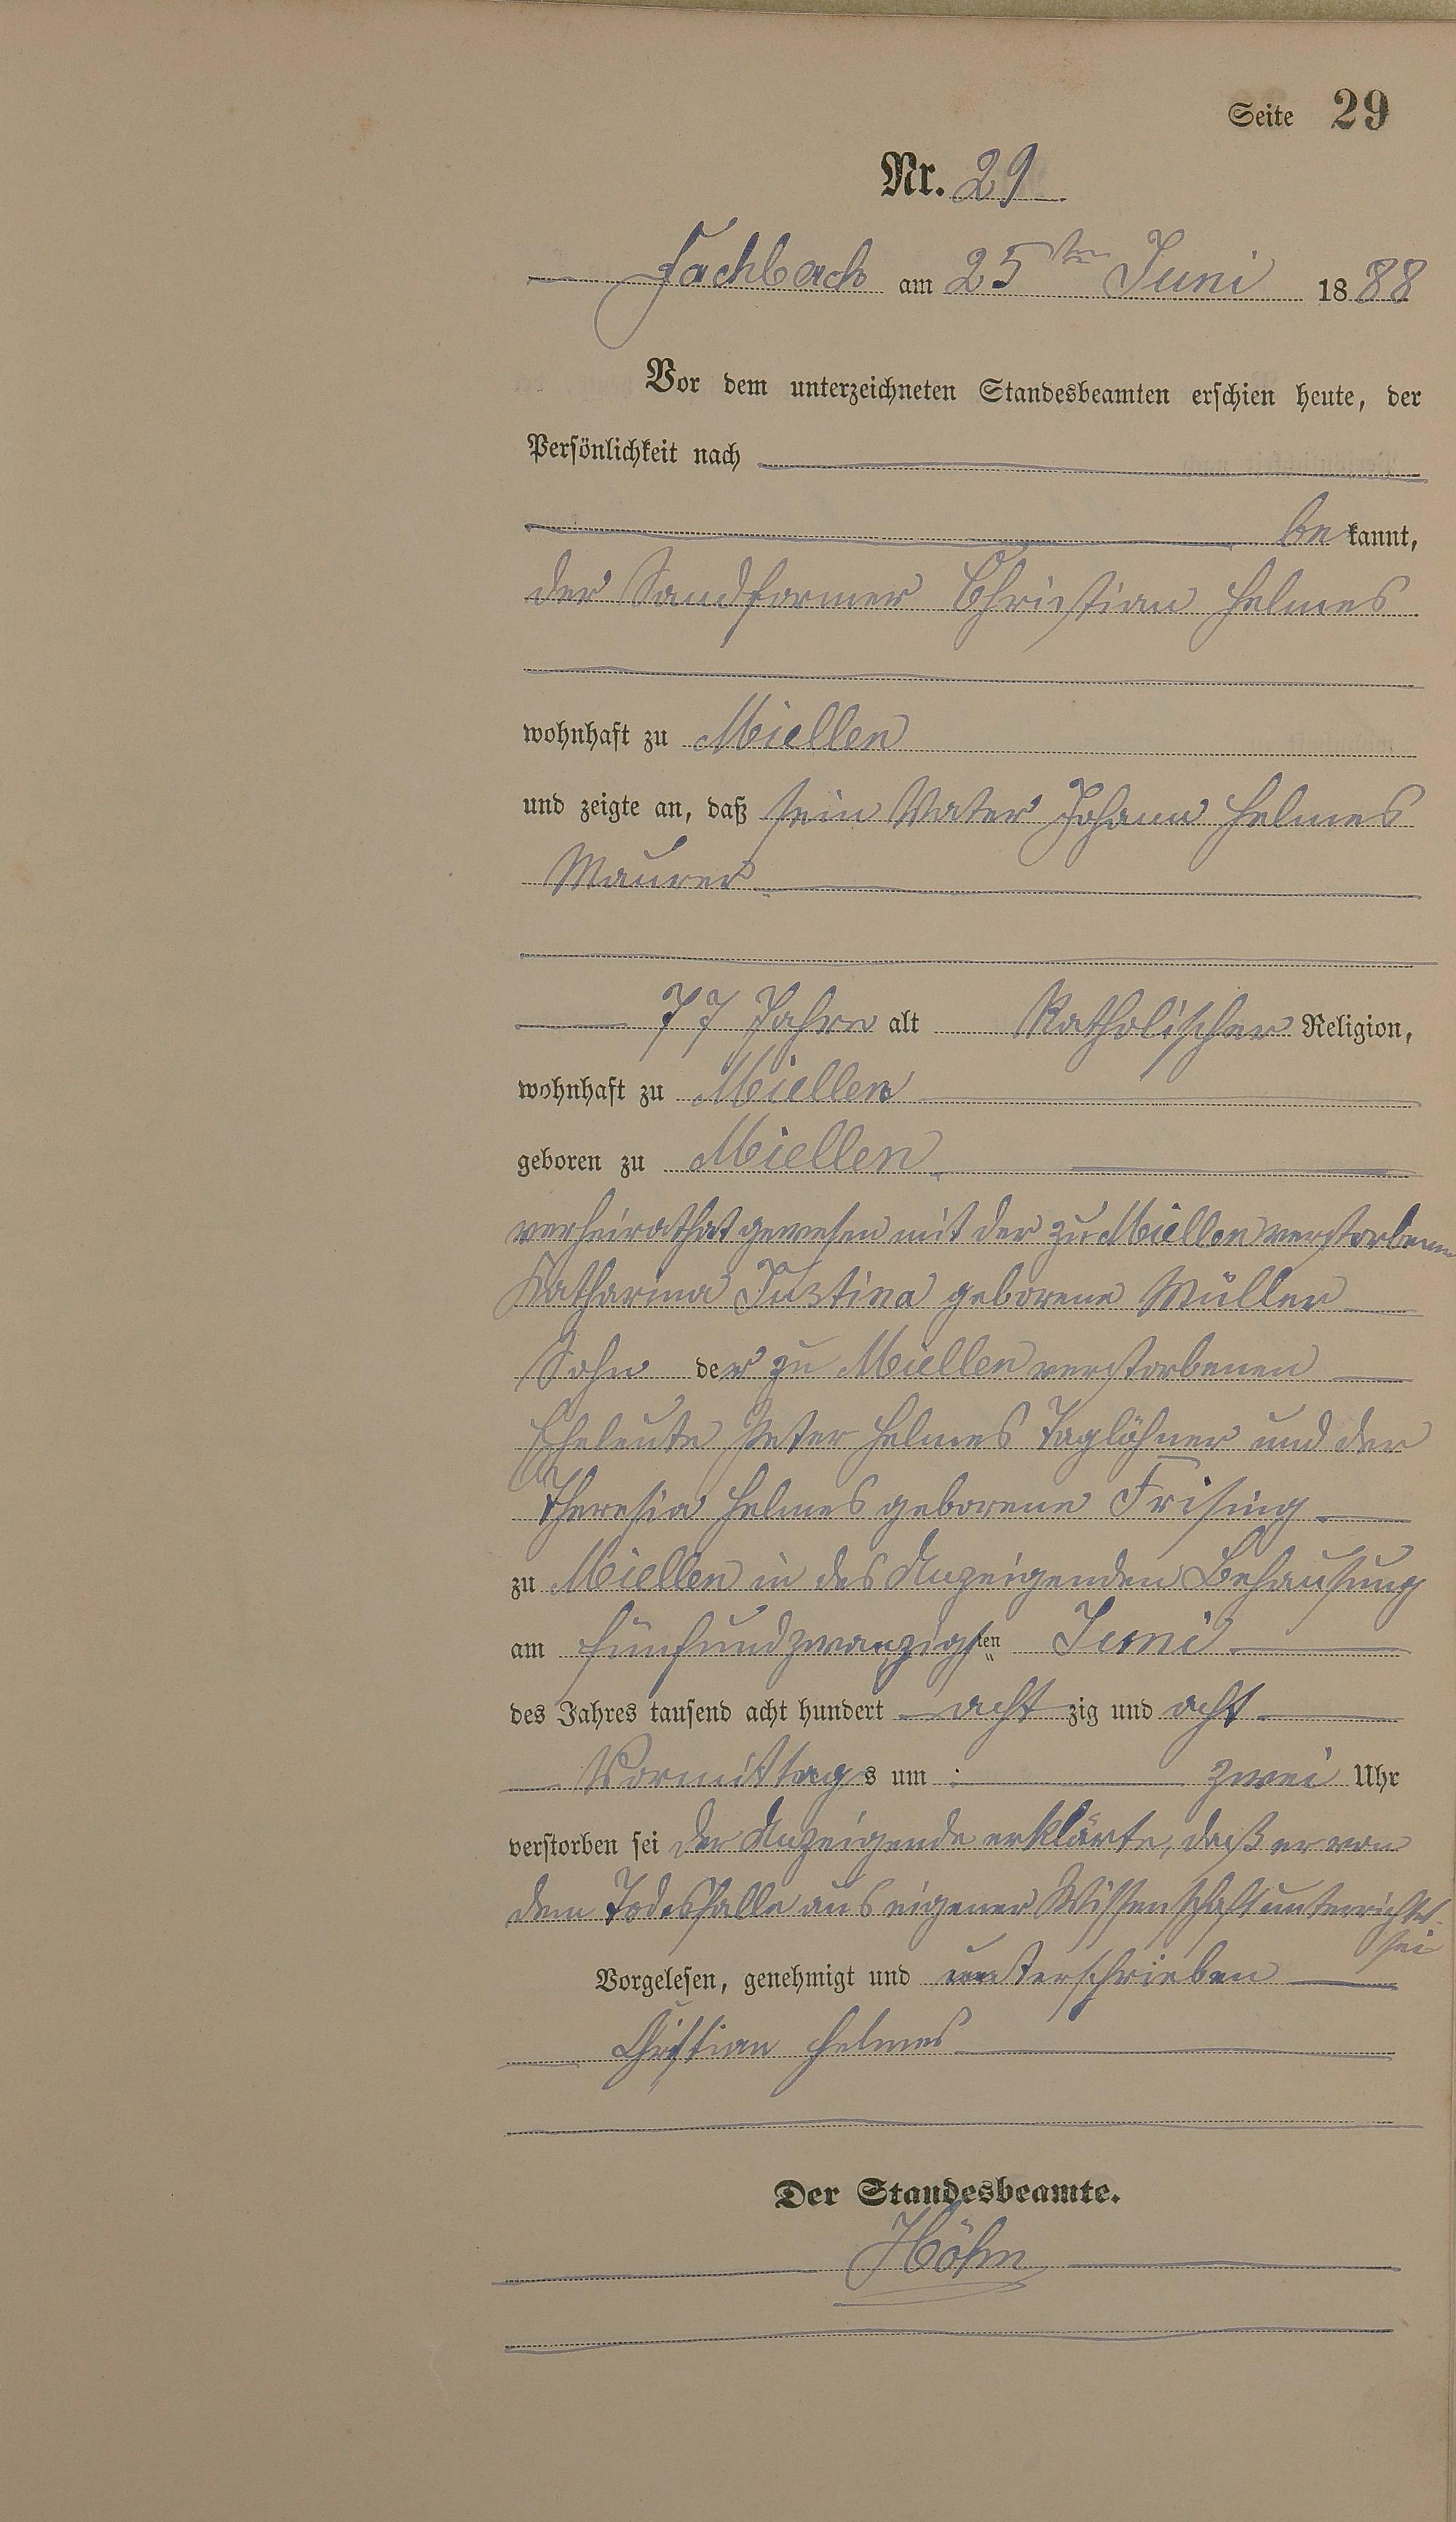 Seite 29
Nr. 29
Fachbach am 25ten Juni 1888
Vor dem unterzeichneten Standesbeamten erschien heute, der
Persönlichkeit nach
bekannt,
der Sandformer Christian Helmes
wohnhaft zu Miellen
und zeigte an, daß sein Vater Johann Helmes
Maurer
77 Jahre alt Katholischer Religion,
wohnhaft zu Miellen
geboren zu Miellen
verheirathet gewesen mit der zu Miellen verstorbenen
Katharina Justina geborene Müller
Sohn der zu Miellen verstorbenen
Eheleute Peter Helmes Taglöhner und der
Theresia Helmes geborene Frising
zu Miellen in des Anzeigenden Behausung
am fünfundzwanzigsten Juni
des Jahres tausend acht hundert achtzig und acht
Vormittags um : zwei Uhr
verstorben sei der Anzeigende erklärte, daß er von
dem Todesfalle aus eigener Wissenschaft unterrichtet
sei
Vorgelesen, genehmigt und unterschrieben
Christian Helmes
Der Standesbeamte.
Höhn